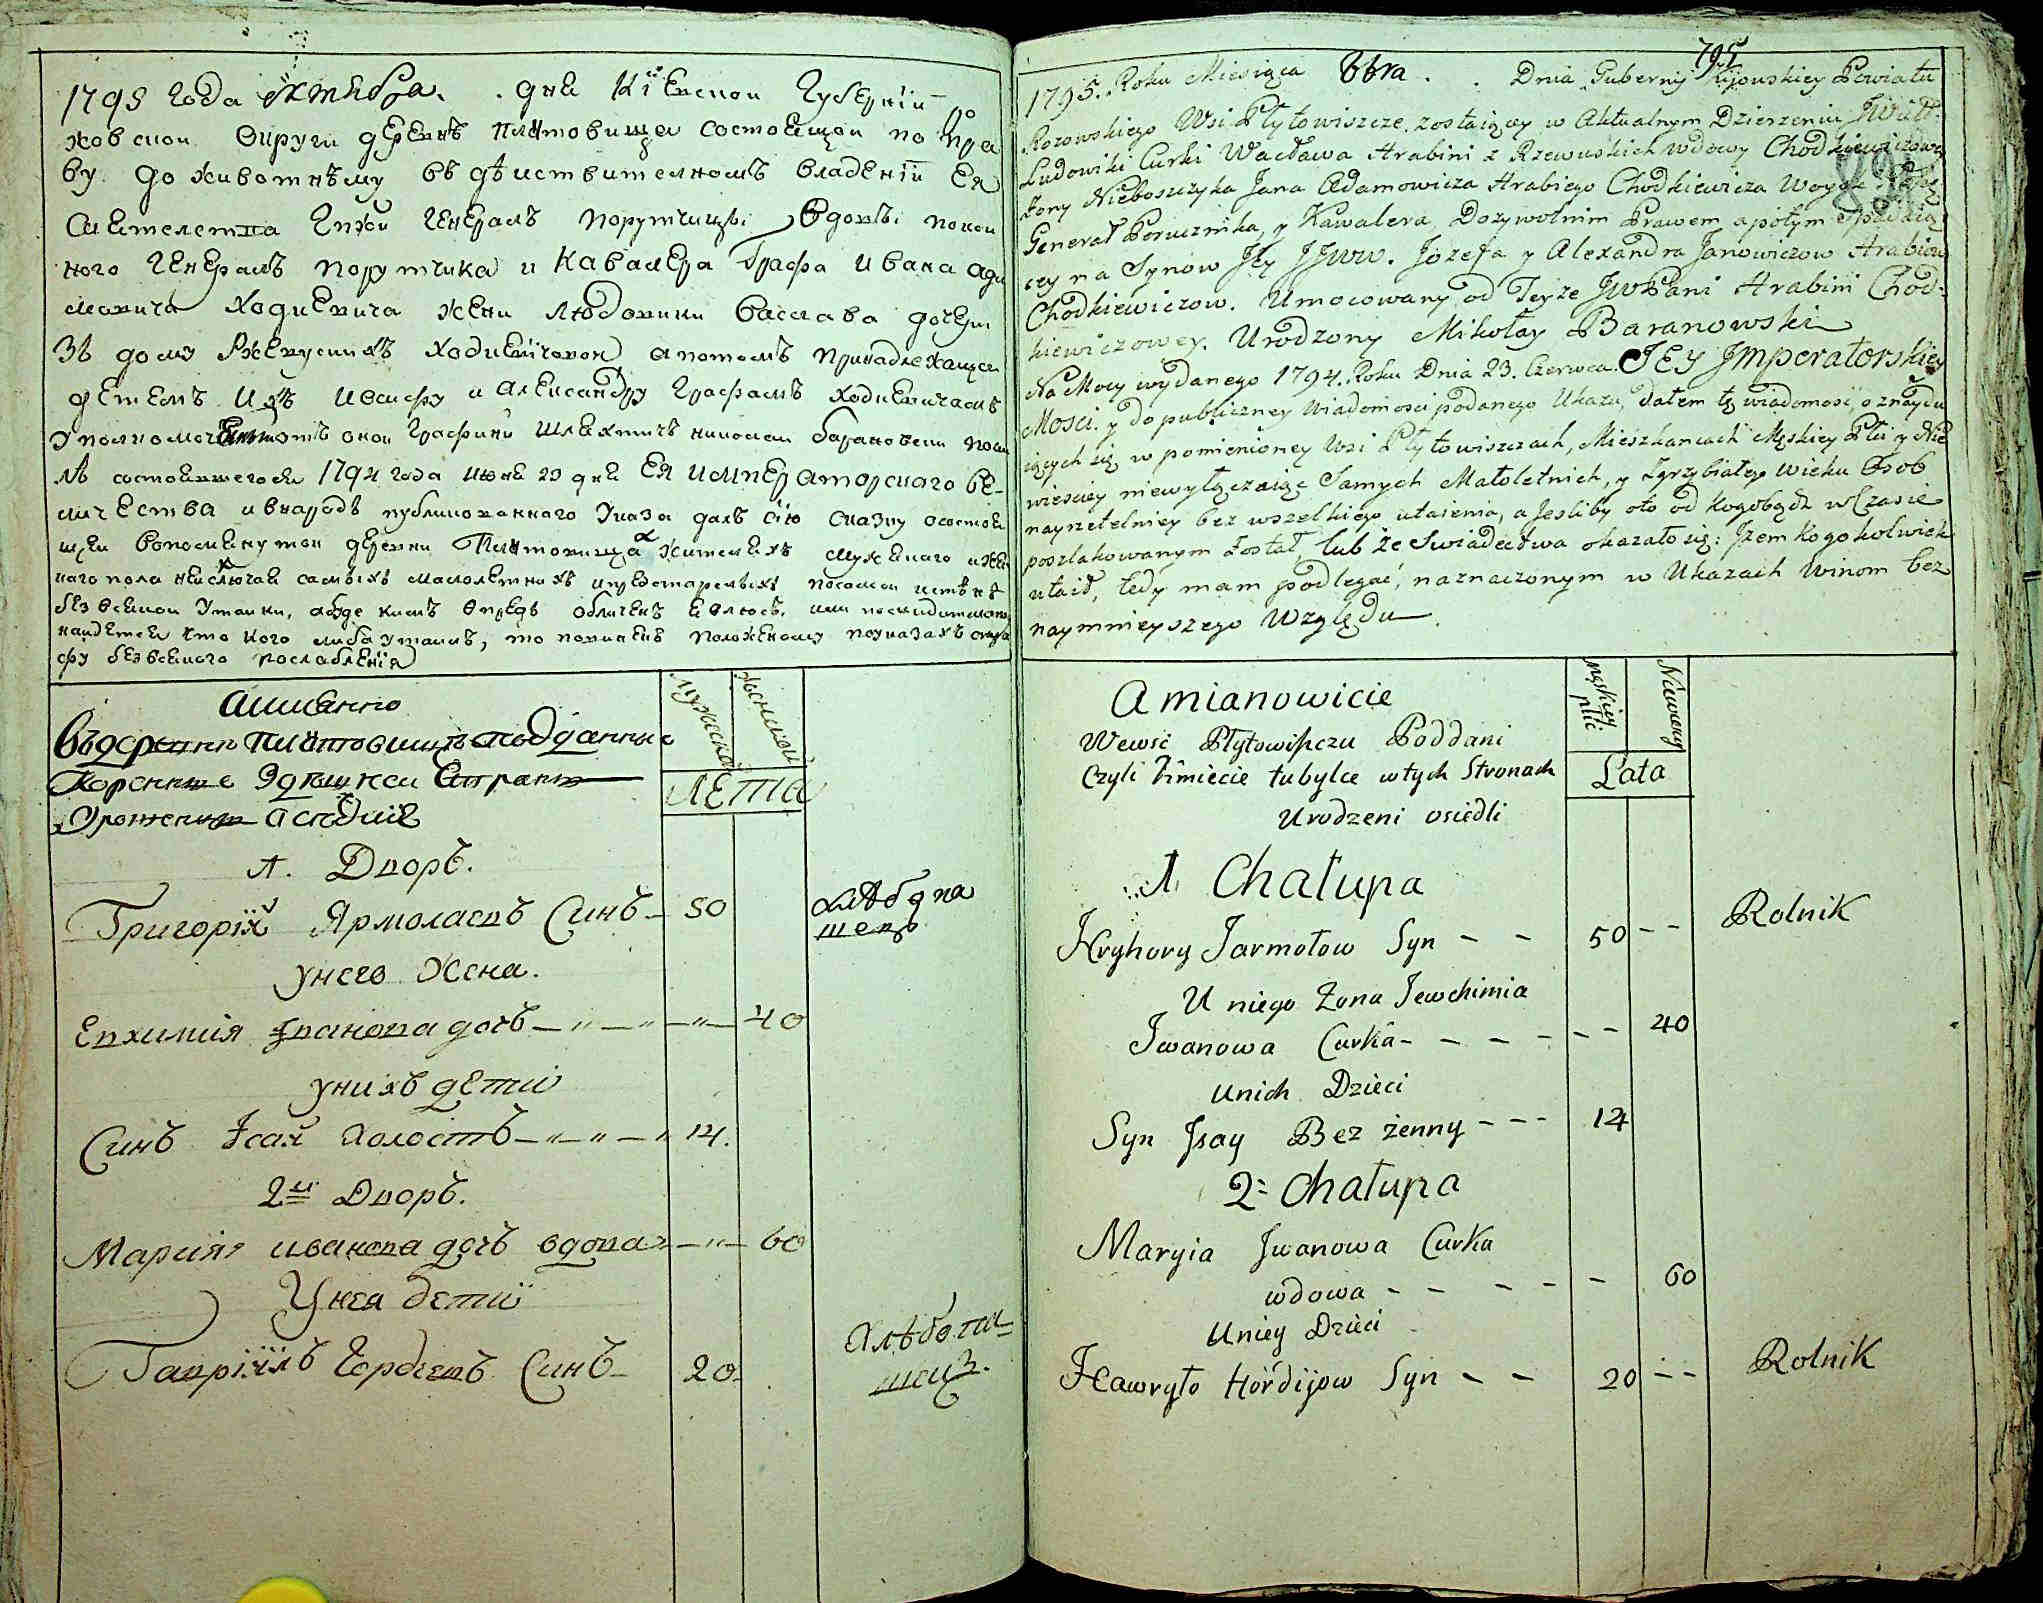 1795 года Октября . дня Кіевской Губерніи
ховской Округи деревнѣ Плитовища состоящой по пра
ву до животнѣму въ дѣиствительномъ владеніи Ея
Генералъ Порутчицы Вдовы покой
ного Генералъ порутчика и Кавалера Графа Ивана Ада
мовича Ходкевича жени Людовики Васлава дочери
Зъ дому Ржевускихъ а потомъ принадлежащей
детемъ Ихъ Иосифу и Александру Графамъ Ходкевичамъ
оной Графини Шляхтичъ николай барановски
состоявшегося 1794 года Июня 23 дня ЕЯ ИМПЕРаторского ве-
личества и внародъ публикованного Указа далъ сію сказку о состоя
щей вопомянутой деревни Плитовища жителяхъ мужеского и жен
ного пола неисключая самыхъ малолетныхъ и престарелыхъ
безвсякой Утайки, обличенъ
кто кого либо утаилъ, то повиненъ положеному поуказахъ
фу безвсякого послабленія
аименно
Въдеревни Плитовищъ подданные
Коренные
Уроженцы аседлие
мужеска
женской
ЛЕТА
1. Дворъ.
Григорій Ярмолаевъ Синъ 50
хлѣбопа
шецъ
унего Жена.
Евхимия Іванова дочъ 40
унихъ дети
Синъ Ісай Холостъ 14.
2й Дворъ.
Мария ивановa дочъ вдова 60
Унея дети
Гавріилъ Гордіевъ Синъ 20
Хлѣбопа
шецъ.
795
1795. Roku Miesiąca 8bra . . Dnia Gubernij Kijowskiey Powiatu
Wsi Płytowiszcze zostaiącey w Aktualnym Dzierzeniu JWW
Ludowiki Curki Wacława Hrabini z Rzewuskich wdowy Chodkiewiczowy
żony Nieboszczyka Jana Adamowicza Hrabiego Chodkiewicza
Generał Porucznika, y Kawalera Dożywotnim Prawem a potym
cey na Synow Jey JJWW. Józefa y Alexandra Janowiczow Hrabiow
Chodkiewiczow. Umocowany od Teyże JWPani Hrabini Chod-
kiewiczowey. Urodzony Mikołay Baranowski
Na Mocy wydanego 1794. Roku Dnia 23. Czerwca. JEY Jmperatorskiey
Mosci y do publiczney wiadomosci podanego Ukazu, dałem tę wiadomość, o znaydu
iących się w pomienioney Wsi Płytowiszczach, Mieszkancach Męskiey Płci y Nie
wiesciey niewyłączaiąc Samych Małoletnich, y zgrzybiałego Wieku Osob
nayrzetelniey bez wszelkiego utaienia, a jesliby oto od kogobądz wCzasie
poszlakowanym został, lub że Swiadectwa okazało się: Jżem kogokolwiek
utaił, tedy mam podlegać, naznaczonym w Ukazach Winom bez
naymnieyszego Względu.
A mianowicie
Wewsi Płytowiszczu Poddani
Czyli Kmiecie tubylce wtych Stronach
Urodzeni osiedli
męskiey
płci
Lata
1 Chałupa
Hryhory Jarmołow Syn - - 50 - - Rolnik
U niego Żona Jewchimia
Jwanowa Curka - - - - - - 40
Unich Dzieci
Syn Jsay Bez żenny - - - 14
2: Chałupa
Maryia Jwanowa Curka
wdowa - - - - - 60
Uniey Dzieci
Hawryło Hordijow Syn - - 20 - - Rolnik